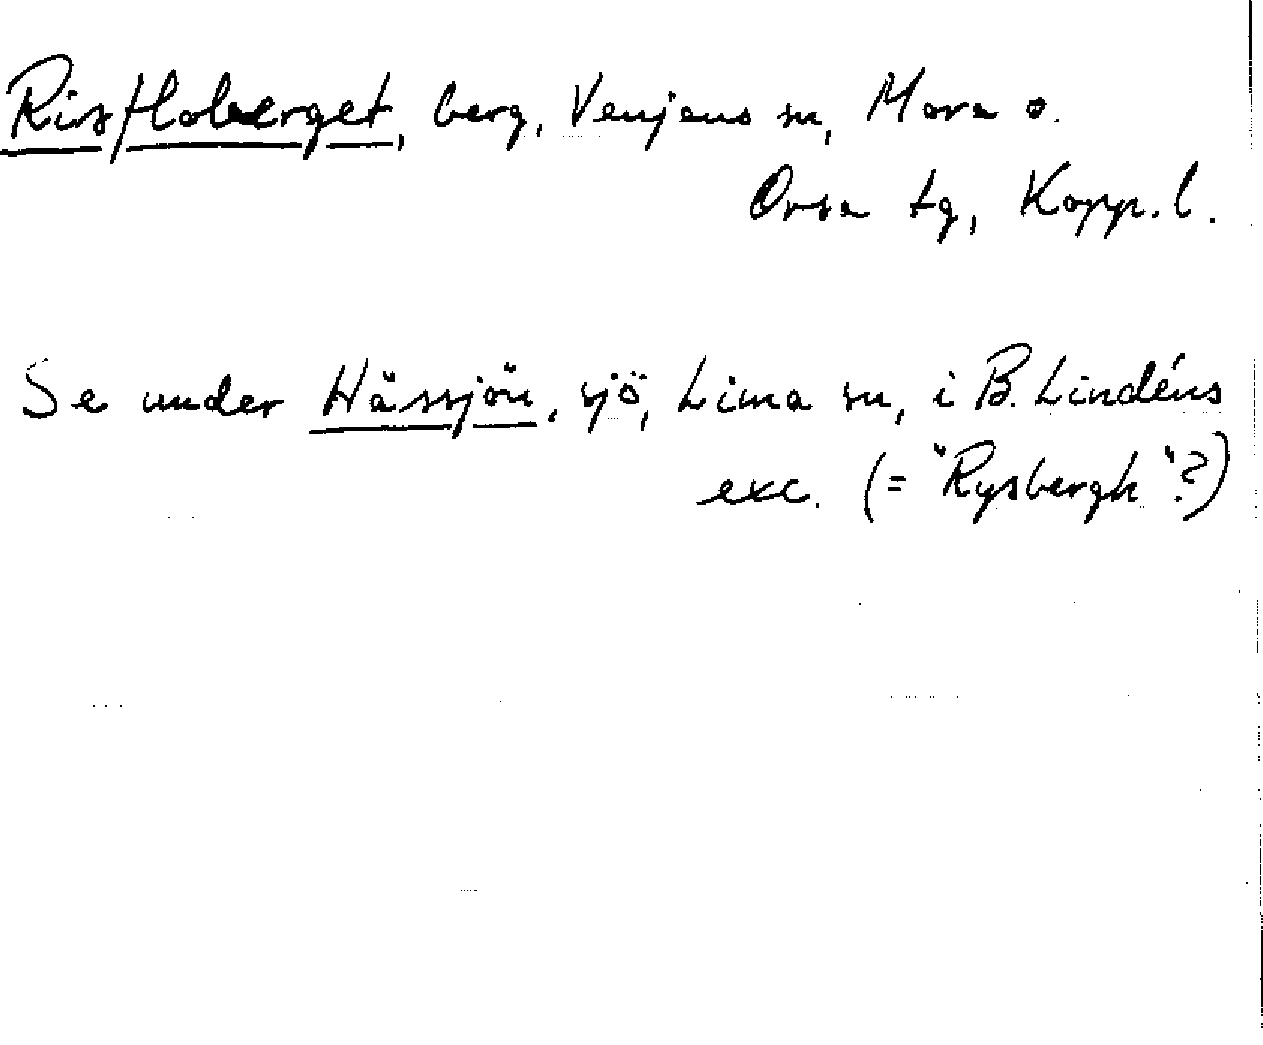 Risfloberget, berg, Venjans sn, Mora o.
Orsa tg, Kopp. l.
Se under Hässjön, sjö, Lima sn, i B. Lindéns
exc. (= "Rysbergh"?)